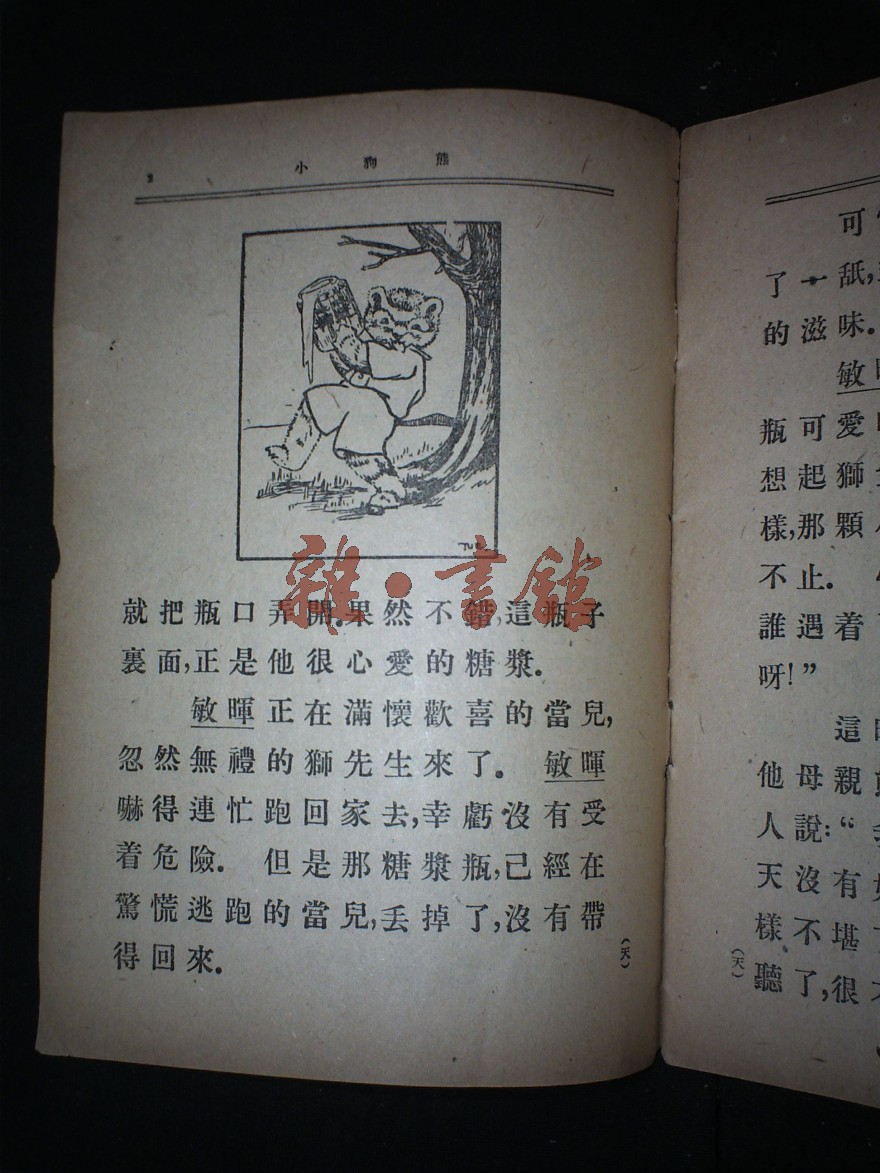 2 小狗熊
雜·書舘
就把瓶口弄開。果然不錯,這瓶子
裏面,正是他很心愛的糖漿。
敏暉正在滿懷歡喜的當兒,
忽然無禮的獅先生來了。 敏暉
嚇得連忙跑回家去,幸虧沒有受
着危險。 但是那糖漿瓶,已經在
驚慌逃跑的當兒,丢掉了,沒有帶
得回來。
(天)
可
了一舐,
的滋味。
敏
瓶可愛
想起獅
樣,那顆
不止。
誰遇着
呀!”
這
他母親
人說:“
天沒有
樣不堪
聽了,很
(天)